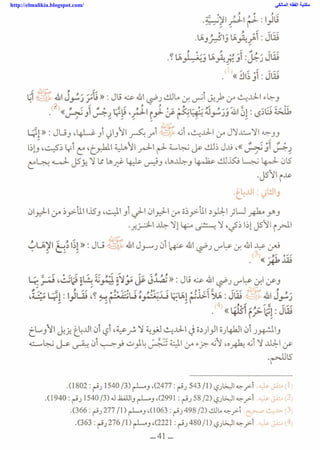 http://elmalikia.blogspot.com/
مكتبة الفقه المالكي
قَالُوا : لَحْمُ الْحُمُرِ الْإِنْسِيَّةِ.
فَقَالَ : أَهْرِيقُوهَا وَاكْسِرُوهَا.
فَقَالَ رَجُلٌ : أَوْ نُهَرِيقُهَا وَنَغْسِلُهَا ؟.
فَقَالَ : أَوْ ذَاكَ» (1).
وجاء الحديث من طريق أنس بن مالك رضي الله عنه قال : «فَأَمَرَ رَسُولُ اللهِ ﷺ أَبَا
طَلْحَةَ فَنَادَى : إِنَّ اللهَ وَرَسُولَهُ يَنْهَيَانِكُمْ عَنْ لُحُومِ الْحُمُرِ، فَإِنَّهَا رِجْسٌ أَوْ نَجِسٌ» (2).
ووجه الاستدلال من الحديث، أنه ﷺ أمر بكسر الأواني أو غسلها، وقال : «إِنَّهَا
رِجْسٌ أَوْ نَجِسٌ»، فدل ذلك على نجاسة لحم الحمر الأهلية المطبوخ، مع أنها ذكيت، وإذا
كان لحمها نجسا فكذلك عظمها وجلدها، وقيس عليها غيرها مما لا يؤكل لحمه بجامع
عدم الأكل.
والثاني : الدباغ.
وهو مطهر لسائر الجلود المأخوذة من الحيوان الحي أو الميت، وكذا المأخوذ من الحيوان
المحرم الأكل إذا ذكي، لا يستثنى منها إلا جلد الخنزير.
فعن عبد الله بن عباس رضي الله عنهما أن رسول الله ﷺ قال : «إِذَا دُبِغَ الْإِهَابُ
فَقَدْ طَهُرَ» (3).
وعن ابن عباس رضي الله عنه قال : «تُصُدِّقَ عَلَى مَوْلَاةٍ لِمَيْمُونَةَ بِشَاةٍ فَمَاتَتْ، فَمَرَّ بِهَا
رَسُولُ اللهِ ﷺ فَقَالَ : هَلَّا أَخَذْتُمْ إِهَابَهَا فَدَبَغْتُمُوهُ فَانْتَفَعْتُمْ بِهِ ؟، فَقَالُوا : إِنَّهَا مَيْتَةٌ،
فَقَالَ : إِنَّمَا حَرُمَ أَكْلُهَا» (4).
والمشهور أن الطهارة الواردة في الحديث لغوية لا شرعية، أي أن الدباغ يزيل الأوساخ
عن الجلد لا أنه يطهره، لأنه جزء من الميتة تَنَجَّسَ بالموت فوجب أن يبقى على نجاسته
كاللحم.
(1) متفق عليه. أخرجه البخاري (1/ 543 رقم : 2477)، ومسلم (3/ 1540 رقم : 1802).
(2) متفق عليه. أخرجه البخاري (2/ 58 رقم : 2991)، ومسلم واللفظ له (3/ 1540 رقم : 1940).
(3) حديث صحيح. أخرجه مالك (2/ 498 رقم : 1063)، ومسلم (1/ 277 رقم : 366).
(4) متفق عليه. أخرجه البخاري (1/ 480 رقم : 2221)، ومسلم (1/ 276 رقم : 363).
— 41 —